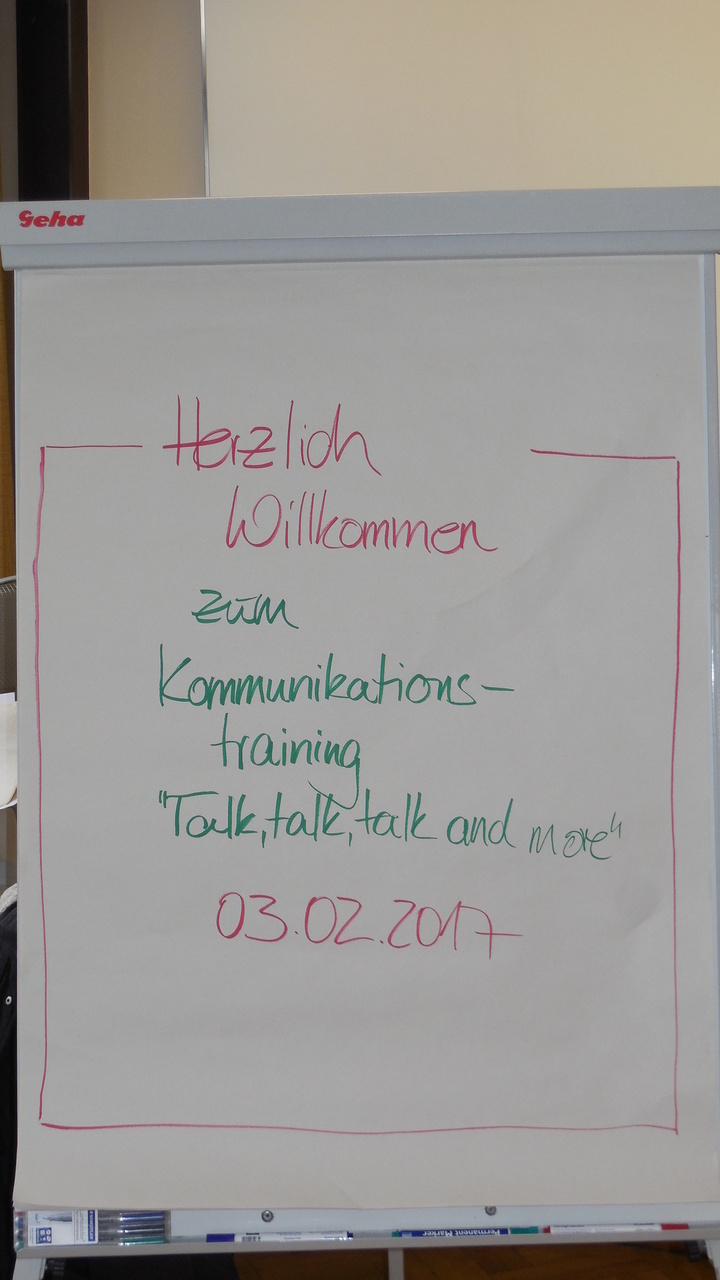 Geha
Herzlich
Willkommen
zum
Kommunikations-
training
"Talk, talk, talk and more"
03.02.2017
Permanent Marker